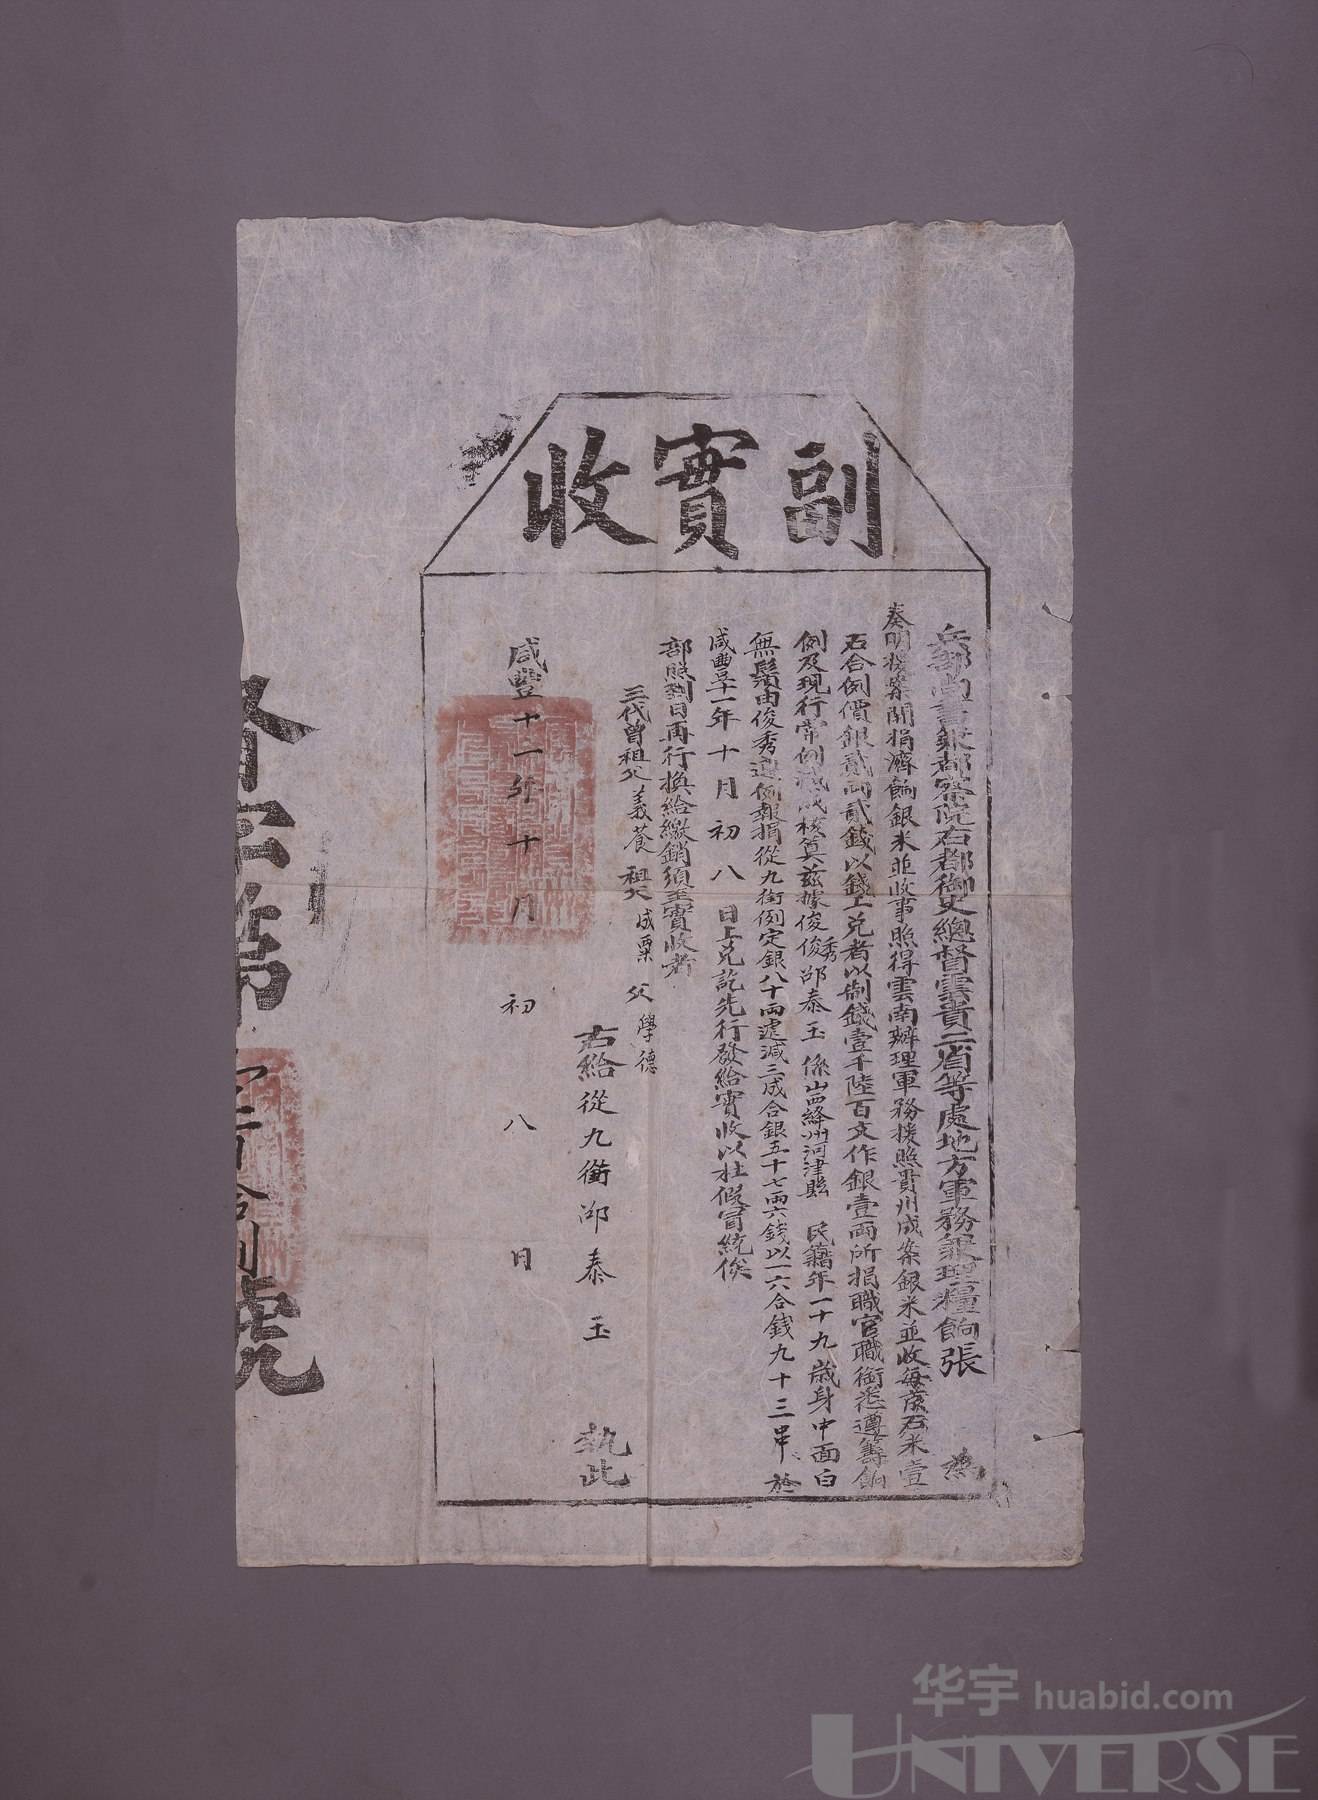 副實收
兵部尚書兼都察院右都御史總督雲貴二省等處地方軍務兼理糧餉張
奏明援案開捐濟餉銀米並收事照得雲南辦理軍務援照貴州成案銀米並收每倉石米壹
石合例價銀貳兩貳錢以錢上兌者以制錢壹千陸百文作銀壹兩所捐職官職銜悉遵籌餉
例及現行常例減成核算茲據俊秀邵泰玉係山西絳州河津縣民籍年一十九歲身中面白
無鬚由俊秀遵例報捐從九銜例定銀八十兩遞減二成合銀五十七兩六錢以一六合錢九十三串於
咸豐十一年十月初八日上兌訖先行發給實收以杜假冒統俟
部照到日再行換給繳銷須至實收者
三代曾祖父義養祖父成粟父學德
右給從九銜邵泰玉執此
咸豐十一年十月初八日
字第
號
华宇 huabid.com
UNIVERSE